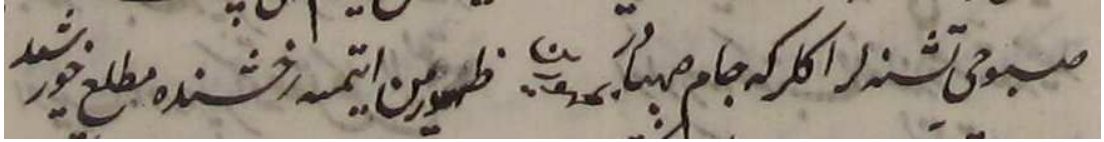 صبوحی تشنه لر اکلر که جام صهبادر ظهورین ایتمه رخشنده مطلع خورشید